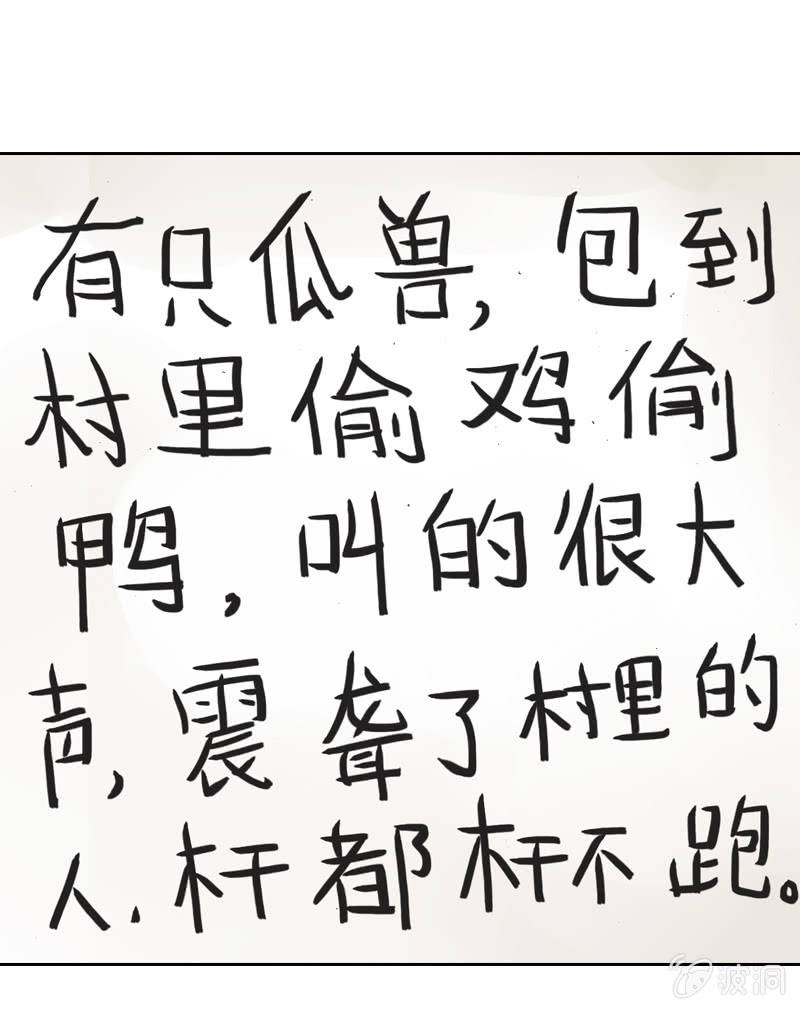 有只瓜兽，包到
村里偷鸡偷
鸭，叫的很大
声，震聋了村里的
人．杆都杆不跑。
波洞